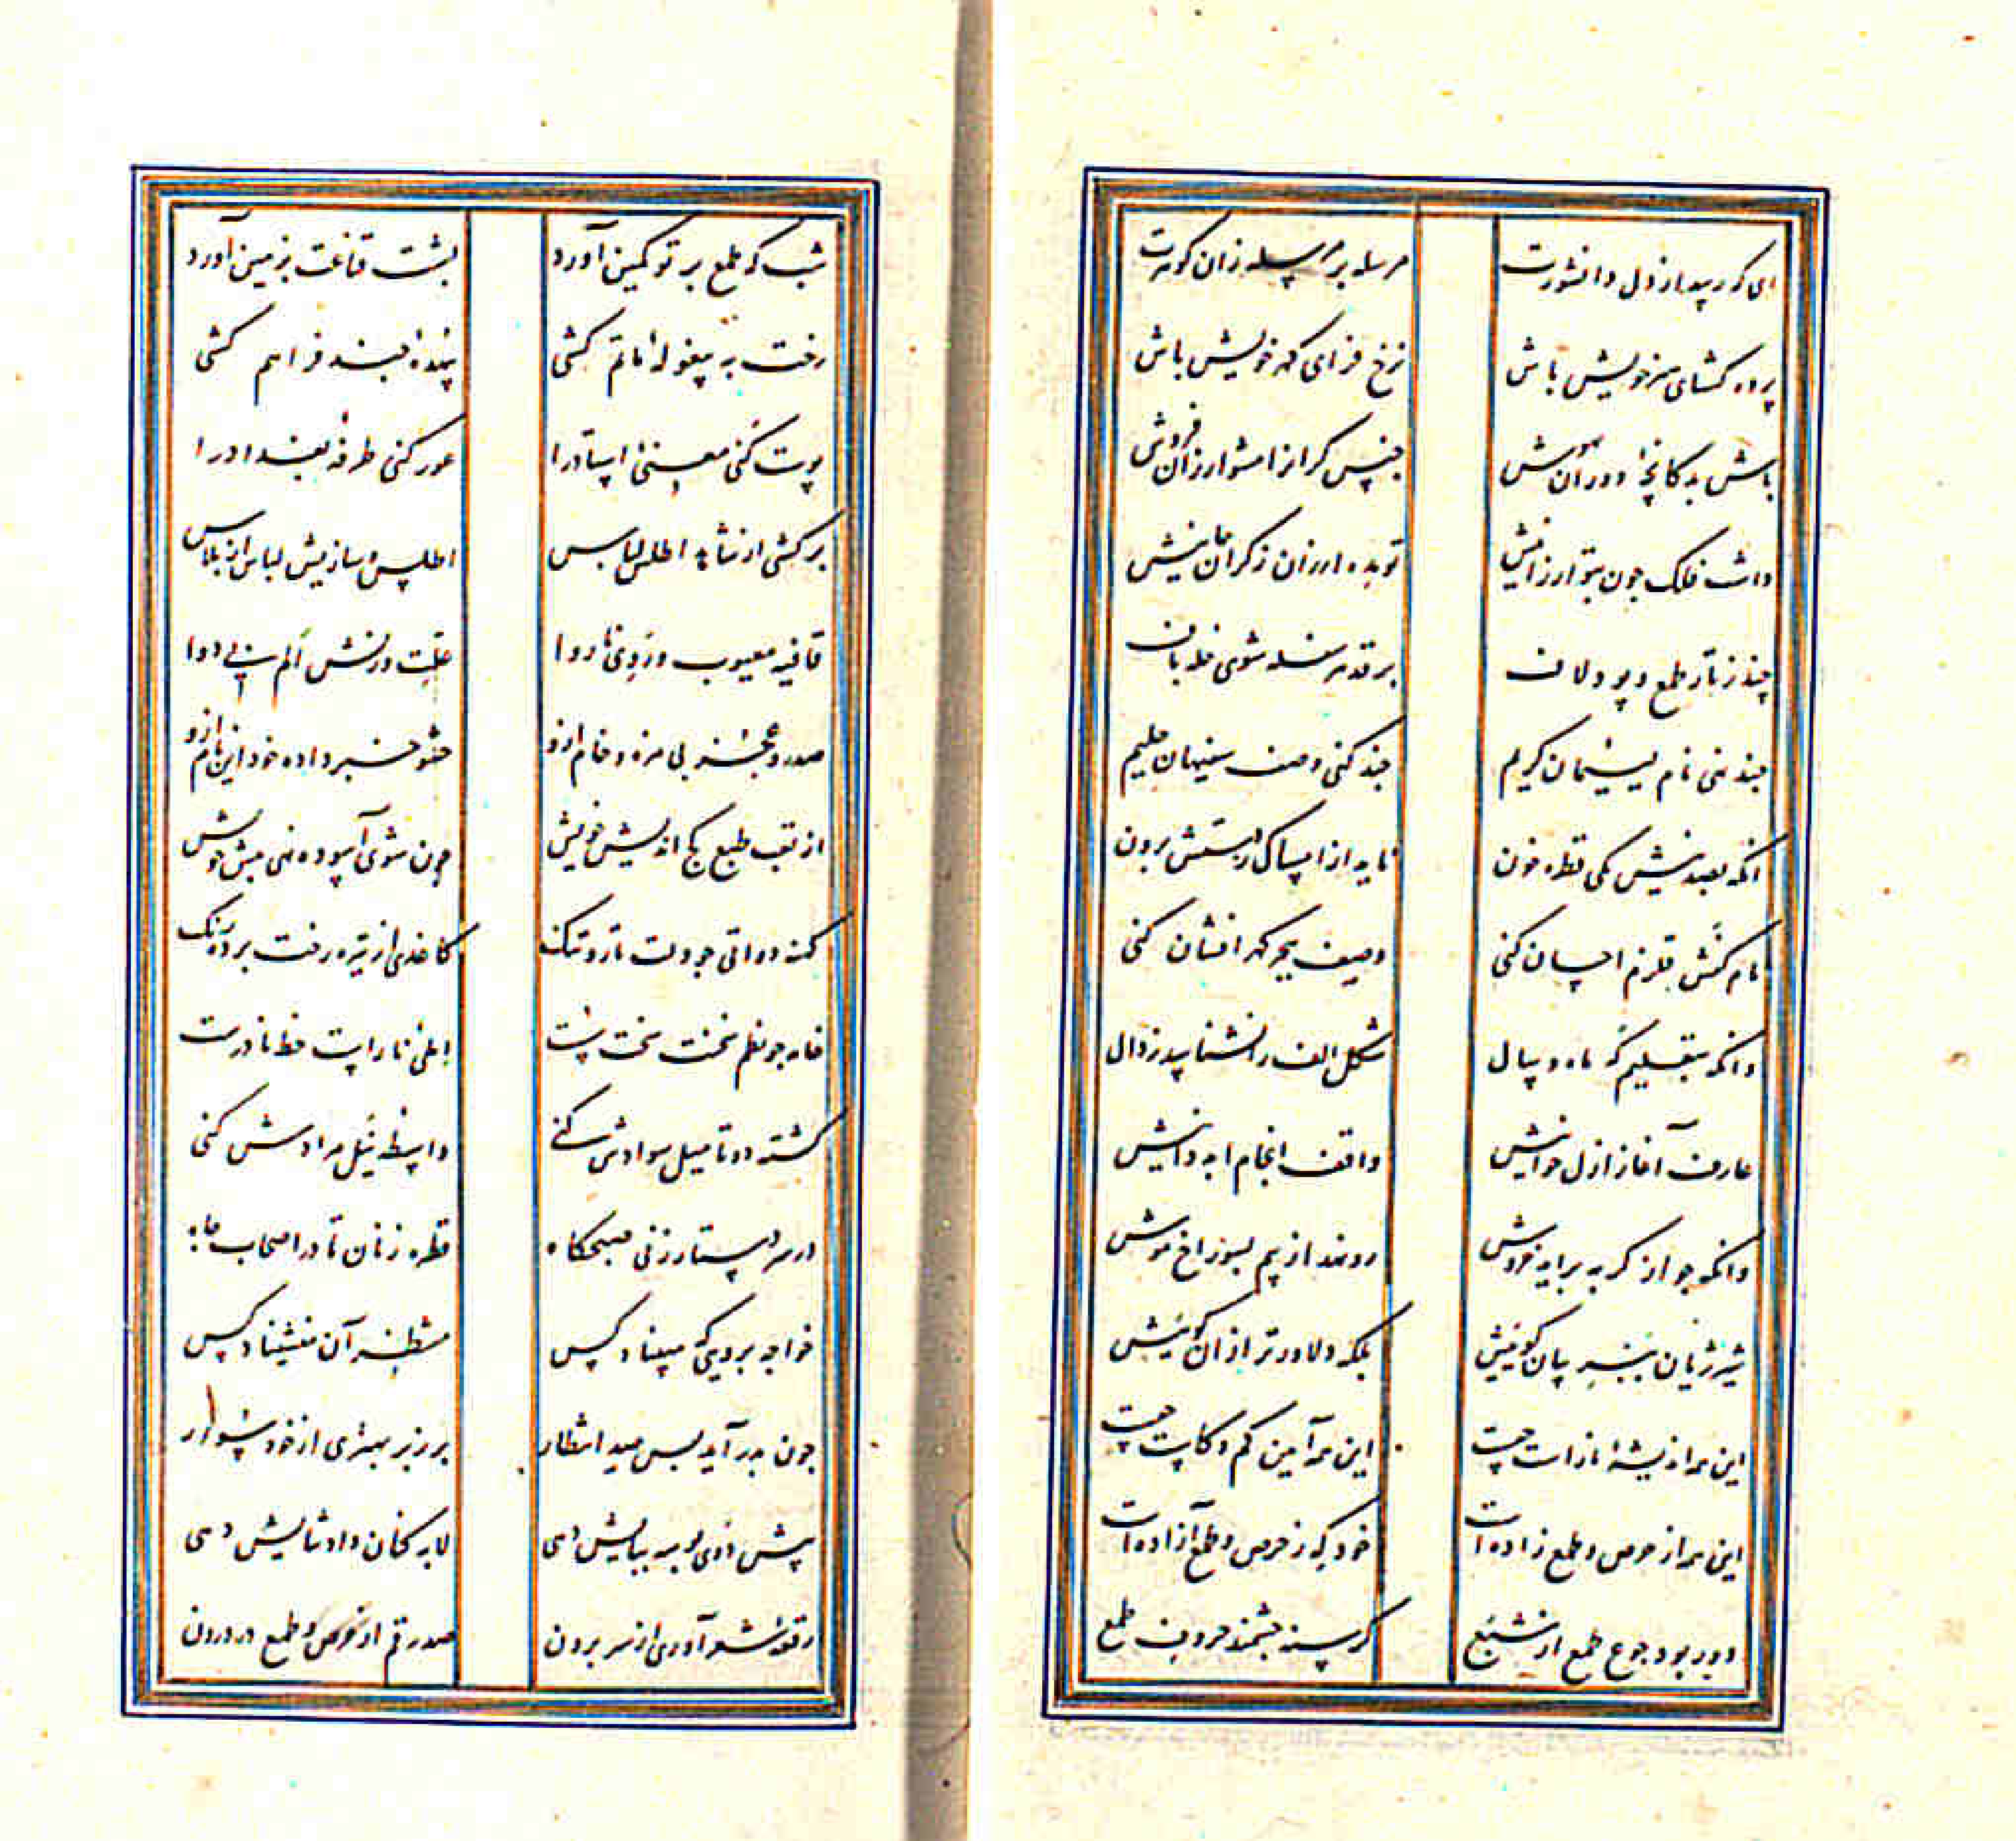 ای که رسد از دل دانشورت مرسله بر مرسله زان گوهرت
پرده کشای هنر خویش باش نرخ فزای گهر خویش باش
باش بدکانچهٔ دوران خموش جنس گرانرا مشو ارزان فروش
داشت فلک چون بتو ارزانیش تو بده ارزان ز گران مانیش
چند ز تار طمع و پود لاف بر قد هر سفله شوی حله باف
چند نهی نام لئیمان کریم چند کنی وصف سفیهان حلیم
آنکه بصد نیش یکی قطره خون ناید از امساک ز دستش برون
نام کفش قلزم احسان کنی وصف به بحر گهر افشان کنی
وانکه بتعلیم گه ماه و سال شکل الف را نشناسد ز دال
عارف آغاز ازل خوانیش واقف انجام ابد دانیش
وانکه چو از گربه برآید خروش رو نهد از بیم بسوراخ موش
شیر ژیان ببر بیان گوئیش بلکه دلاورتر ازان گوئیش
این همه اندیشهٔ ناراست چیست این همه آیین کم و کاست چیست
این همه از حرص و طمع زاده است خود که ز حرص و طمع آزاده است
دور بود جوع طمع از شبع گرسنه چشمند حروف طمع
شب که طمع بر تو کمین آورد پشت قناعت بزمین آورد
رخت به پیغولهٔ ماتم کشی چند فراهم کشی
پوست کنی معنی استاد را عور کنی طرفهٔ بغداد را
برکشی از شاهد اطلس لباس اطلس سازیش لباس از پلاس
قافیه معیوب و روی ناروا علت وزنش الم بی دوا
صدر و عجز بی مزه و خام ازو حشو خبر داده خود این نام ازو
از تعب طبع کج اندیش خویش چون شوی آسوده نهی پیش خویش
کهنه دواتی چو دلت تار و تنگ کاغذی از تیره رخت برده رنگ
خامه چو نظم سخنت سخت سست املی ناراست خط نادرست
گشته دو تا میل سوادش کنی واسطهٔ نیل مرادش کنی
در سر دستار زنی صبحگاه قطره زنان تا در اصحاب جاه
خواجه مبیناد کس آن منشیناد کس
چون بدر آید پس صد انتظار بهتری از خود سوار
پیش دوی بوسه بپایش دهی لابه کنان داد ثنایش دهی
رقعهٔ شعر آوری از سر برون صد رقم از حرص و طمع در درون